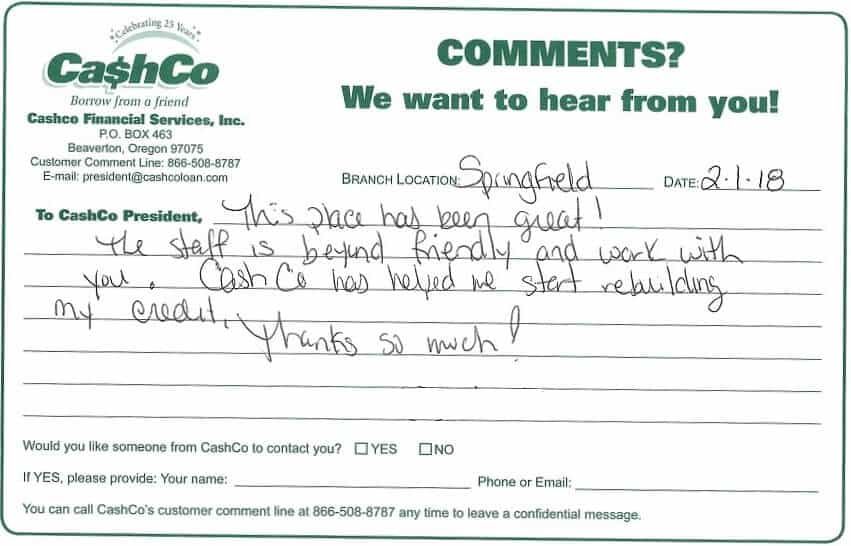 Celebrating 25 Years
Ca$hCo
Borrow from a friend
Cashco Financial Services, Inc.
P.O. BOX 463
Beaverton, Oregon 97075
Customer Comment Line: 866-508-8787
E-mail: president@cashcoloan.com
COMMENTS?
We want to hear from you!
BRANCH LOCATION: Springfield DATE: 2.1.18
To CashCo President, This place has been great!
The staff is beyond friendly and work with
you. CashCo has helped me start rebuilding
my credit. Thanks so much!
Would you like someone from CashCo to contact you? ☐ YES ☐ NO
If YES, please provide: Your name: Phone or Email:
You can call CashCo's customer comment line at 866-508-8787 any time to leave a confidential message.